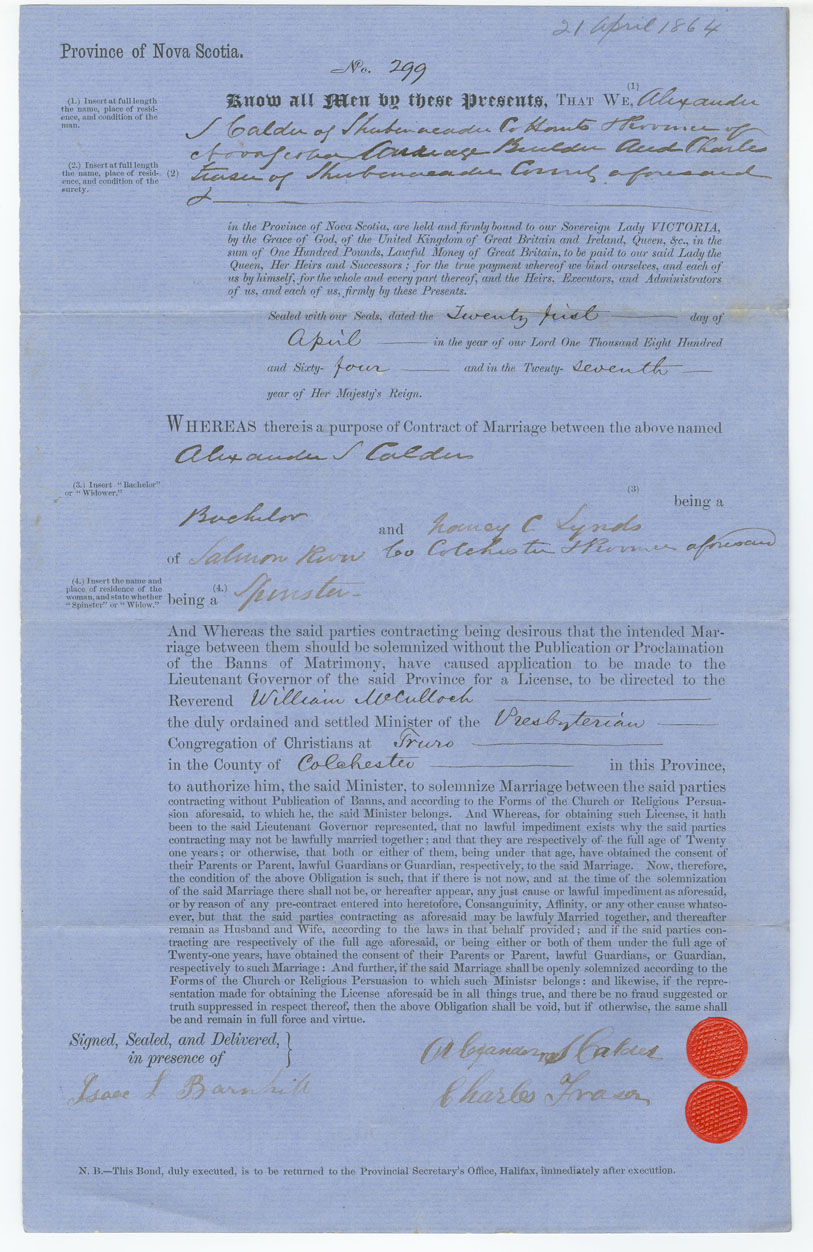 21 April 1864
Province of Nova Scotia.
No. 299
(1.) Insert at full length
the name, place of resid-
ence, and condition of the
man.
(1)
Know all Men by these Presents, THAT WE, Alexander
S Calder of Shubenacadie Co Hants & Province of
Nova Scotia Carriage Builder And Charles
(2.) Insert at full length
the name, place of resid-
ence, and condition of the
surety.
(2) Fraser of Shubenacadie County aforesaid
&
in the Province of Nova Scotia, are held and firmly bound to our Sovereign Lady VICTORIA,
by the Grace of God, of the United Kingdom of Great Britain and Ireland, Queen, &c., in the
sum of One Hundred Pounds, Lawful Money of Great Britain, to be paid to our said Lady the
Queen, Her Heirs and Successors; for the true payment whereof we bind ourselves, and each of
us by himself, for the whole and every part thereof, and the Heirs, Executors, and Administrators
of us, and each of us, firmly by these Presents.
Sealed with our Seals, dated the Twenty first day of
April in the year of our Lord One Thousand Eight Hundred
and Sixty- four and in the Twenty- seventh
year of Her Majesty's Reign.
WHEREAS there is a purpose of Contract of Marriage between the above named
Alexander S Calder
(3.) Insert "Bachelor"
or "Widower."
(3)
being a
Bachelor and Nancy C Lynds
of Salmon River Co Colchester & Province aforesaid
(4.) Insert the name and
place of residence of the
woman, and state whether
"Spinster" or "Widow."
being a (4.) Spinster
And Whereas the said parties contracting being desirous that the intended Mar-
riage between them should be solemnized without the Publication or Proclamation
of the Banns of Matrimony, have caused application to be made to the
Lieutenant Governor of the said Province for a License, to be directed to the
Reverend William McCulloch
the duly ordained and settled Minister of the Presbyterian
Congregation of Christians at Truro
in the County of Colchester in this Province,
to authorize him, the said Minister, to solemnize Marriage between the said parties
contracting without Publication of Banns, and according to the Forms of the Church or Religious Persua-
sion aforesaid, to which he, the said Minister belongs. And Whereas, for obtaining such License, it hath
been to the said Lieutenant Governor represented, that no lawful impediment exists why the said parties
contracting may not be lawfully married together; and that they are respectively of the full age of Twenty
one years; or otherwise, that both or either of them, being under that age, have obtained the consent of
their Parents or Parent, lawful Guardians or Guardian, respectively, to the said Marriage. Now, therefore,
the condition of the above Obligation is such, that if there is not now, and at the time of the solemnization
of the said Marriage there shall not be, or hereafter appear, any just cause or lawful impediment as aforesaid,
or by reason of any pre-contract entered into heretofore, Consanguinity, Affinity, or any other cause whatso-
ever, but that the said parties contracting as aforesaid may be lawfuly Married together, and thereafter
remain as Husband and Wife, according to the laws in that behalf provided; and if the said parties con-
tracting are respectively of the full age aforesaid, or being either or both of them under the full age of
Twenty-one years, have obtained the consent of their Parents or Parent, lawful Guardians, or Guardian,
respectively to such Marriage: And further, if the said Marriage shall be openly solemnized according to the
Forms of the Church or Religious Persuasion to which such Minister belongs: and likewise, if the repre-
sentation made for obtaining the License aforesaid be in all things true, and there be no fraud suggested or
truth suppressed in respect thereof, then the above Obligation shall be void, but if otherwise, the same shall
be and remain in full force and virtue.
Signed, Sealed, and Delivered,
in presence of
Alexander S Calder
Isaac J Barnhill
Charles Fraser
N. B.—This Bond, duly executed, is to be returned to the Provincial Secretary's Office, Halifax, immediately after execution.